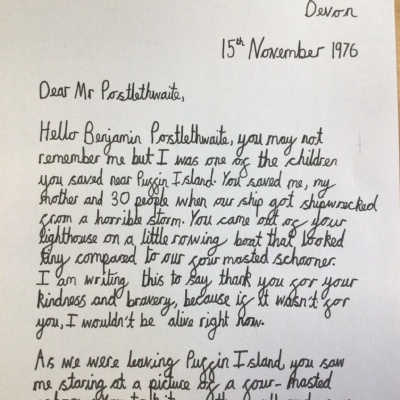 Devon
15th November 1976
Dear Mr Postlethwaite,
Hello Benjamin Postlethwaite, you may not
remember me but I was one of the children
you saved near Puffin Island. You saved me, my
mother and 30 people when our ship got shipwrecked
from a horrible storm. You came out of your
lighthouse on a little rowing boat that looked
tiny compared to our four masted schooner.
I am writing this to say thank you for your
kindness and bravery, because if it wasn't for
you, I wouldn't be alive right now.
As we were leaving Puffin Island, you saw
me staring at a picture of a four-masted